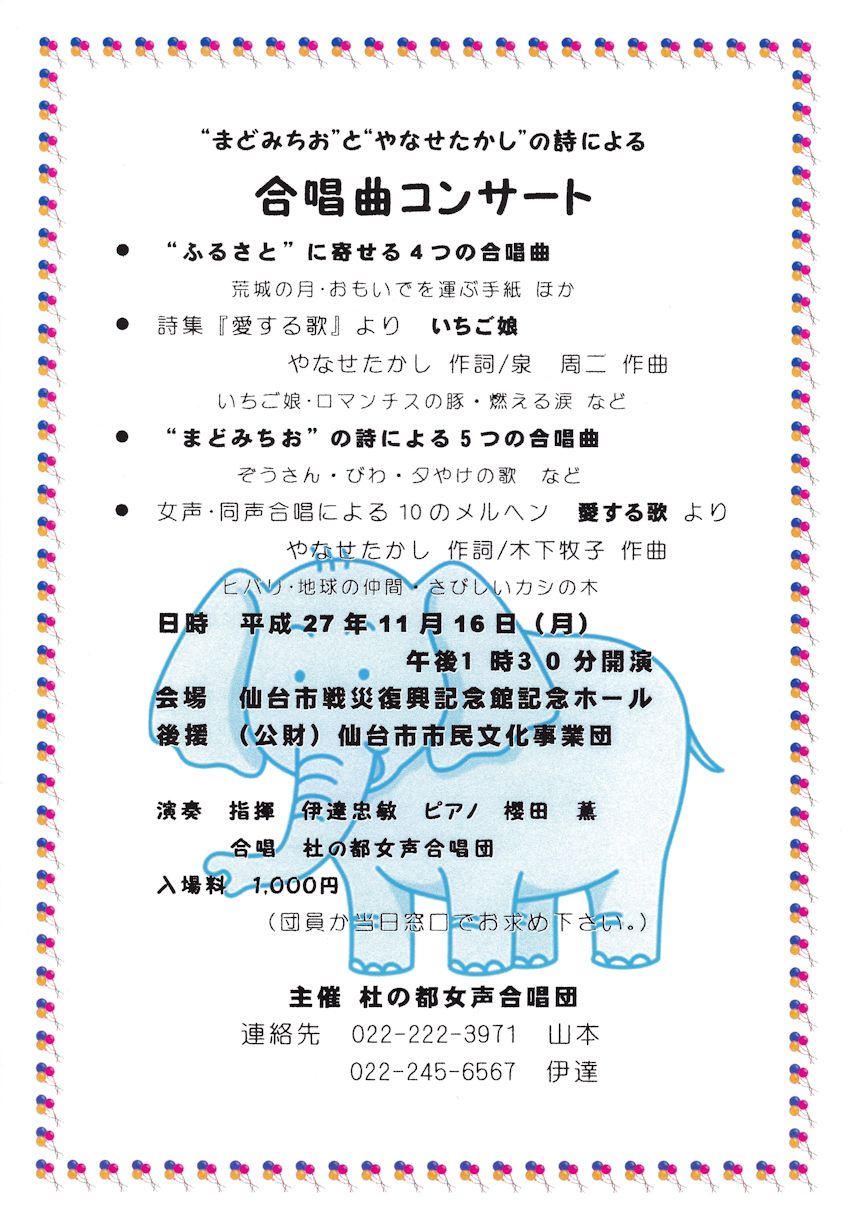 “まどみちお”と“やなせたかし”の詩による
合唱曲コンサート
● “ふるさと”に寄せる4つの合唱曲
荒城の月・おもいでを運ぶ手紙 ほか
● 詩集『愛する歌』より いちご娘
やなせたかし 作詞/泉 周二 作曲
いちご娘・ロマンチスの豚・燃える涙 など
● “まどみちお”の詩による5つの合唱曲
ぞうさん・びわ・夕やけの歌 など
● 女声・同声合唱による10のメルヘン 愛する歌 より
やなせたかし 作詞/木下牧子 作曲
ヒバリ・地球の仲間・さびしいカシの木
日時 平成27年11月16日(月)
午後1時30分開演
会場 仙台市戦災復興記念館記念ホール
後援 (公財)仙台市市民文化事業団
演奏 指揮 伊達忠敏 ピアノ 櫻田 薫
合唱 杜の都女声合唱団
入場料 1,000円
(団員か当日窓口でお求め下さい。)
主催 杜の都女声合唱団
連絡先 022-222-3971 山本
022-245-6567 伊達